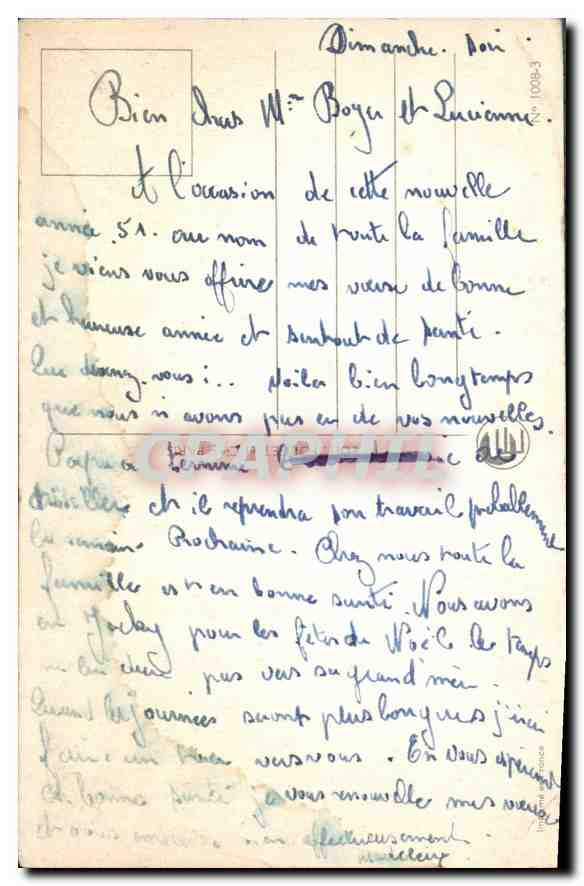 Dimanche soir.
Nº 1008-3
Bien chers Mme Boyer et Lucienne.
A l'occasion de cette nouvelle
année 51. au nom de toute la famille
je viens vous offrir mes vœux de bonne
et heureuse année et surtout de santé.
Que devenez-vous ?.. voilà bien longtemps
que nous n'avons pas eu de vos nouvelles.
CARTPHIL
Papa a terminé de
et il reprendra son travail probablement
la semaine Prochaine. Chez nous toute la
famille est en bonne santé. Nous avons
eu pour les fêtes de Noël le temps
pas vers sa grand'mère.
Quand les journées seront plus longues j'irai
faire un tour vers vous. En vous espérant
en bonne santé je vous renouvelle mes vœux
et affectueusement
Imprimé en France